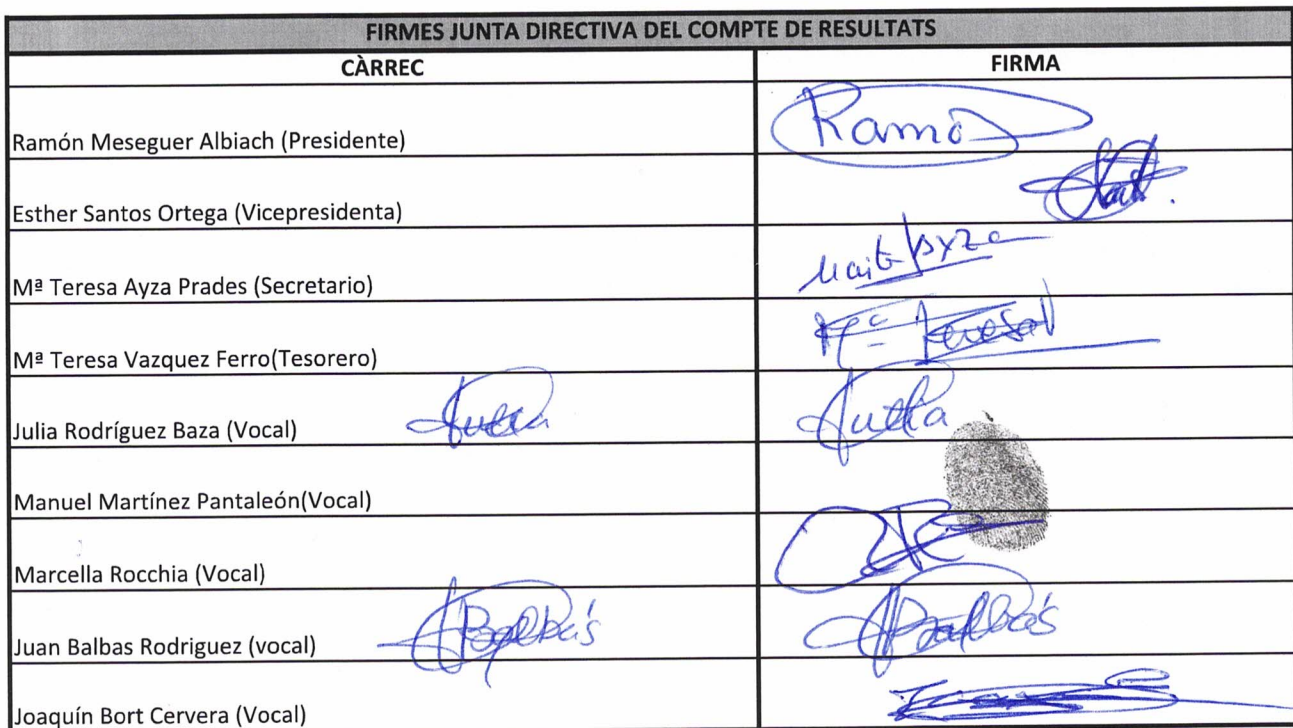 FIRMES JUNTA DIRECTIVA DEL COMPTE DE RESULTATS
CÀRREC FIRMA
Ramón Meseguer Albiach (Presidente) Ramó
Esther Santos Ortega (Vicepresidenta)
Mª Teresa Ayza Prades (Secretario) Maite Ayza
Mª Teresa Vazquez Ferro(Tesorero) Mª Teresa
Julia Rodríguez Baza (Vocal) Julia Julia
Manuel Martínez Pantaleón(Vocal)
Marcella Rocchia (Vocal)
Juan Balbas Rodriguez (vocal) Balbás Balbás
Joaquín Bort Cervera (Vocal)